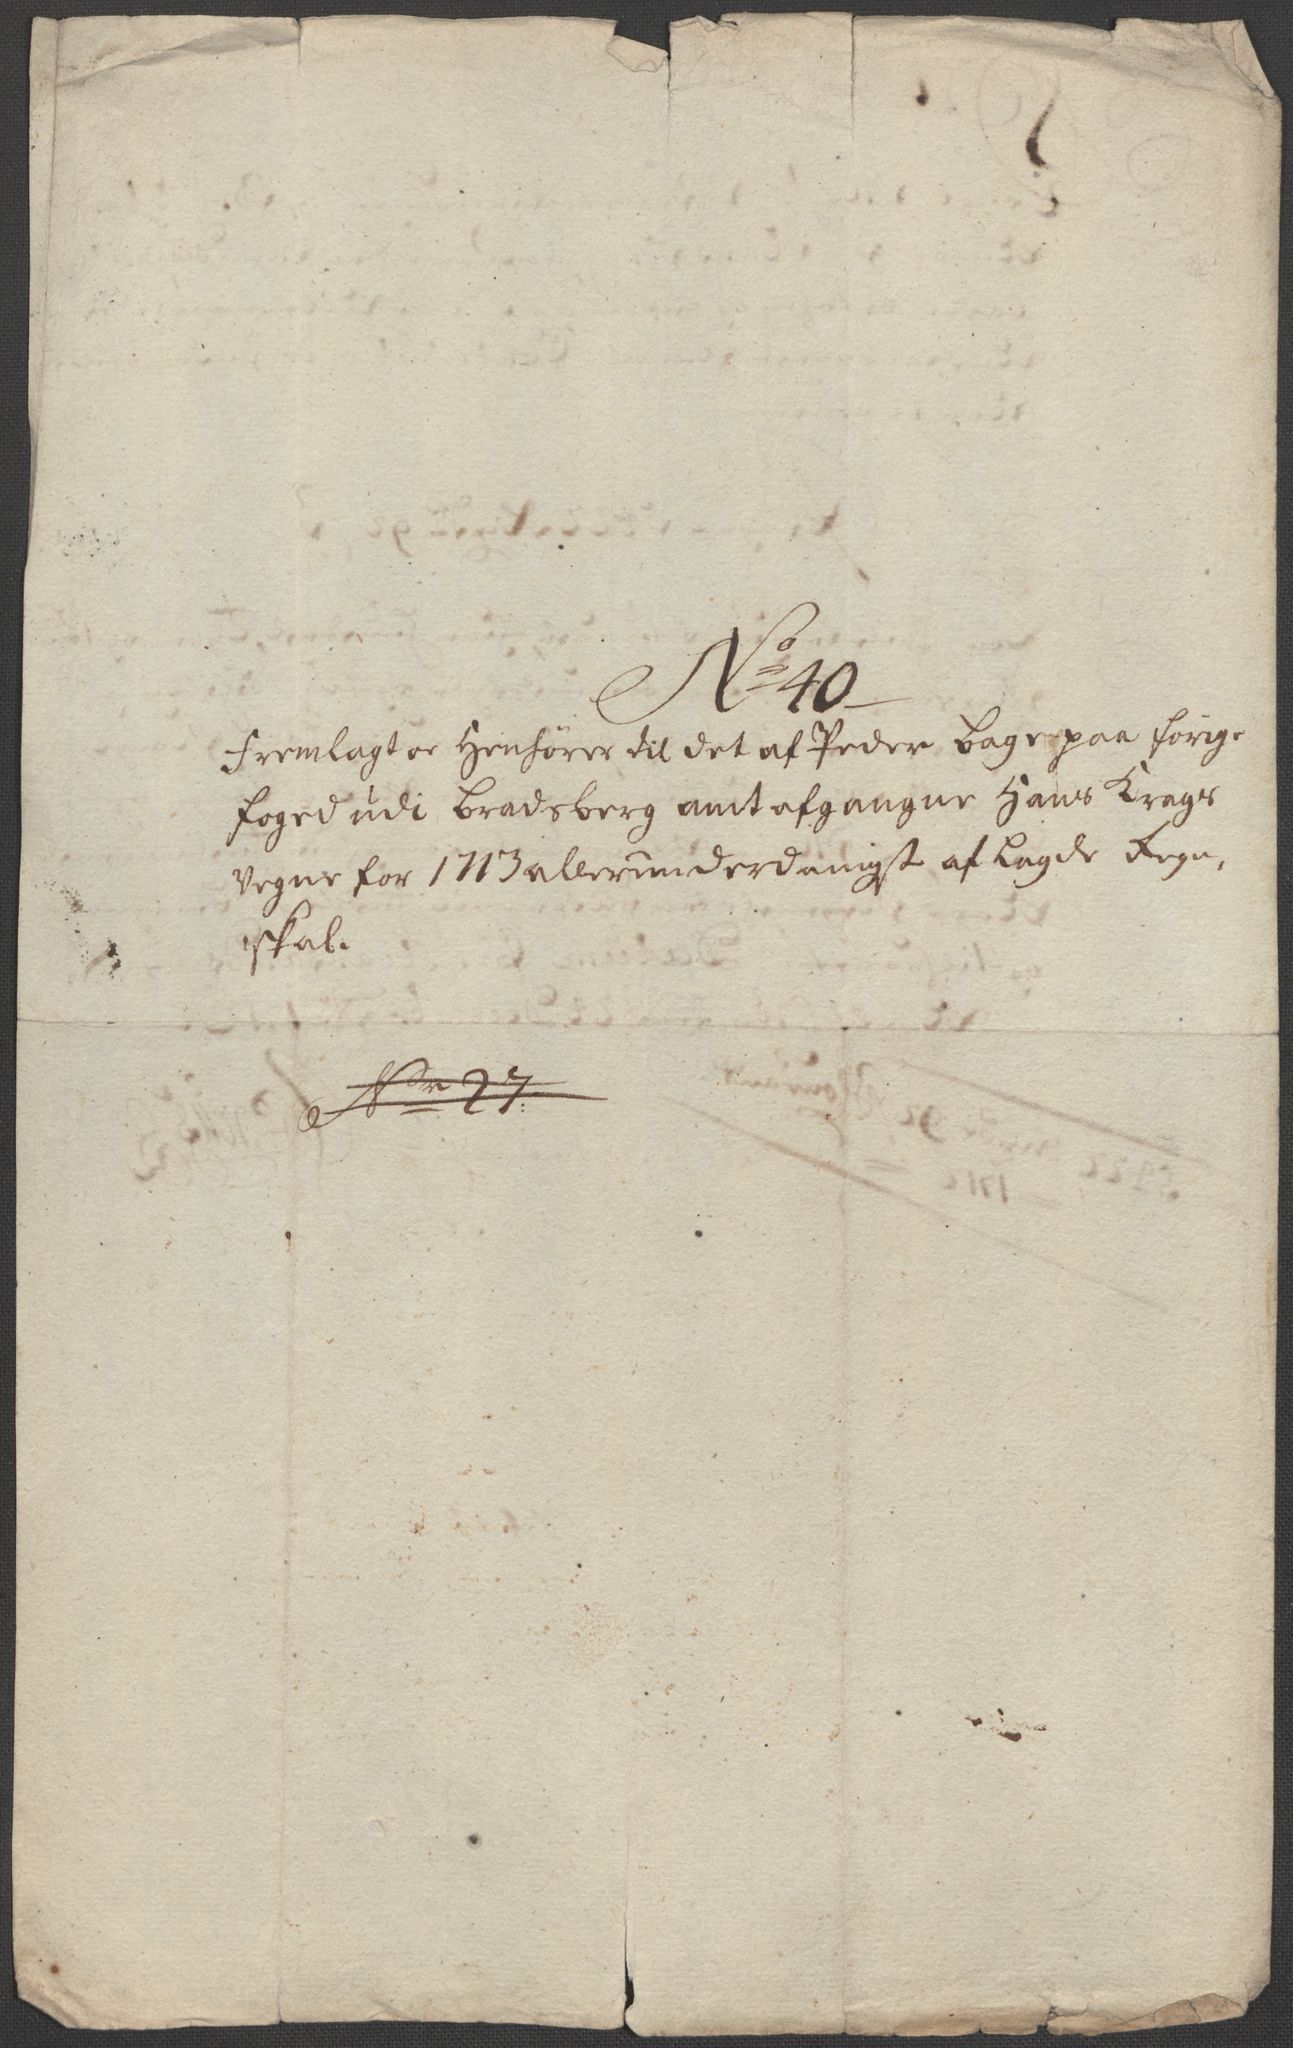 No 40
Fremlagt oc Henhörer til det af Peder Bager paa forige
foged udi Bradsberg amt afgangne Hans Krags
vegne for 1713 allerunderdanigst aflagde Regn,
skab.
Nr 27